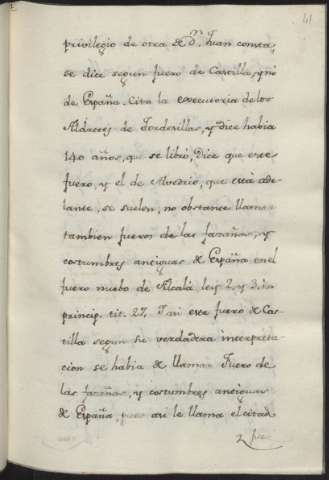 41
privilegio de otra de Dn. Juan consta,
se dice segun fuero de Castilla, y nó
de España. Cita la executoria de los
Aldretes de Tordesillas, y dice habia
140 años, que se libró, Dice que este
fuero, y el de Alvedrio, que está ade-
lante, se suelen, no obstante llamar
tambien fueros de las fazañas, y
costumbres antiguas de España en el
fuero nuebo de Alcalá ley 2, y
princip. tit. 27. I asi este fuero de Cas-
tilla segun su verdadera interpreta-
cion se habia de llamar Fuero de
las fazañas, y costumbres antiguas
de España, pues asi le llama el citad